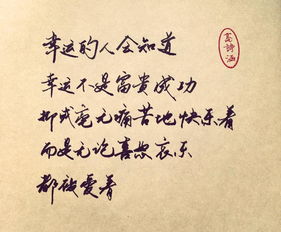 幸运的人会知道
幸运不是富貴成功
抑或毫无痛苦地快乐着
而是无论喜怒哀乐
都被愛着